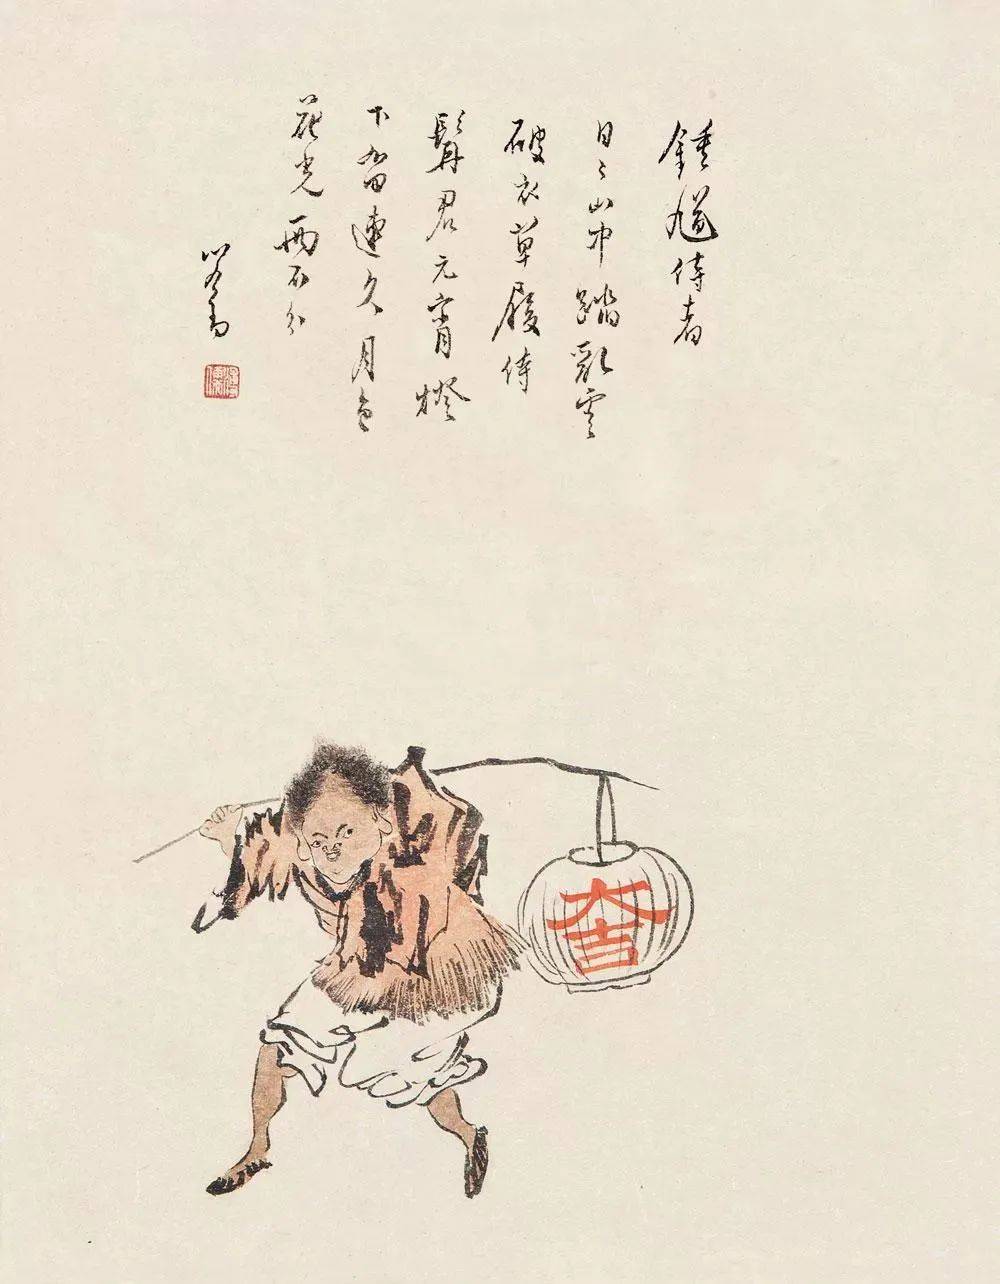 鍾馗侍者
日〻山中踏亂雲
破衣草履侍
髯君元宵燈
下留連久月色
花光兩不分
心畬
溥儒
大吉